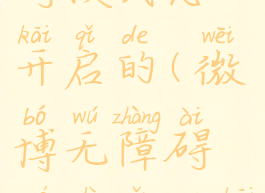 kāi qǐ de wēi
开启的(微
bó wú zhàng ài
博无障碍